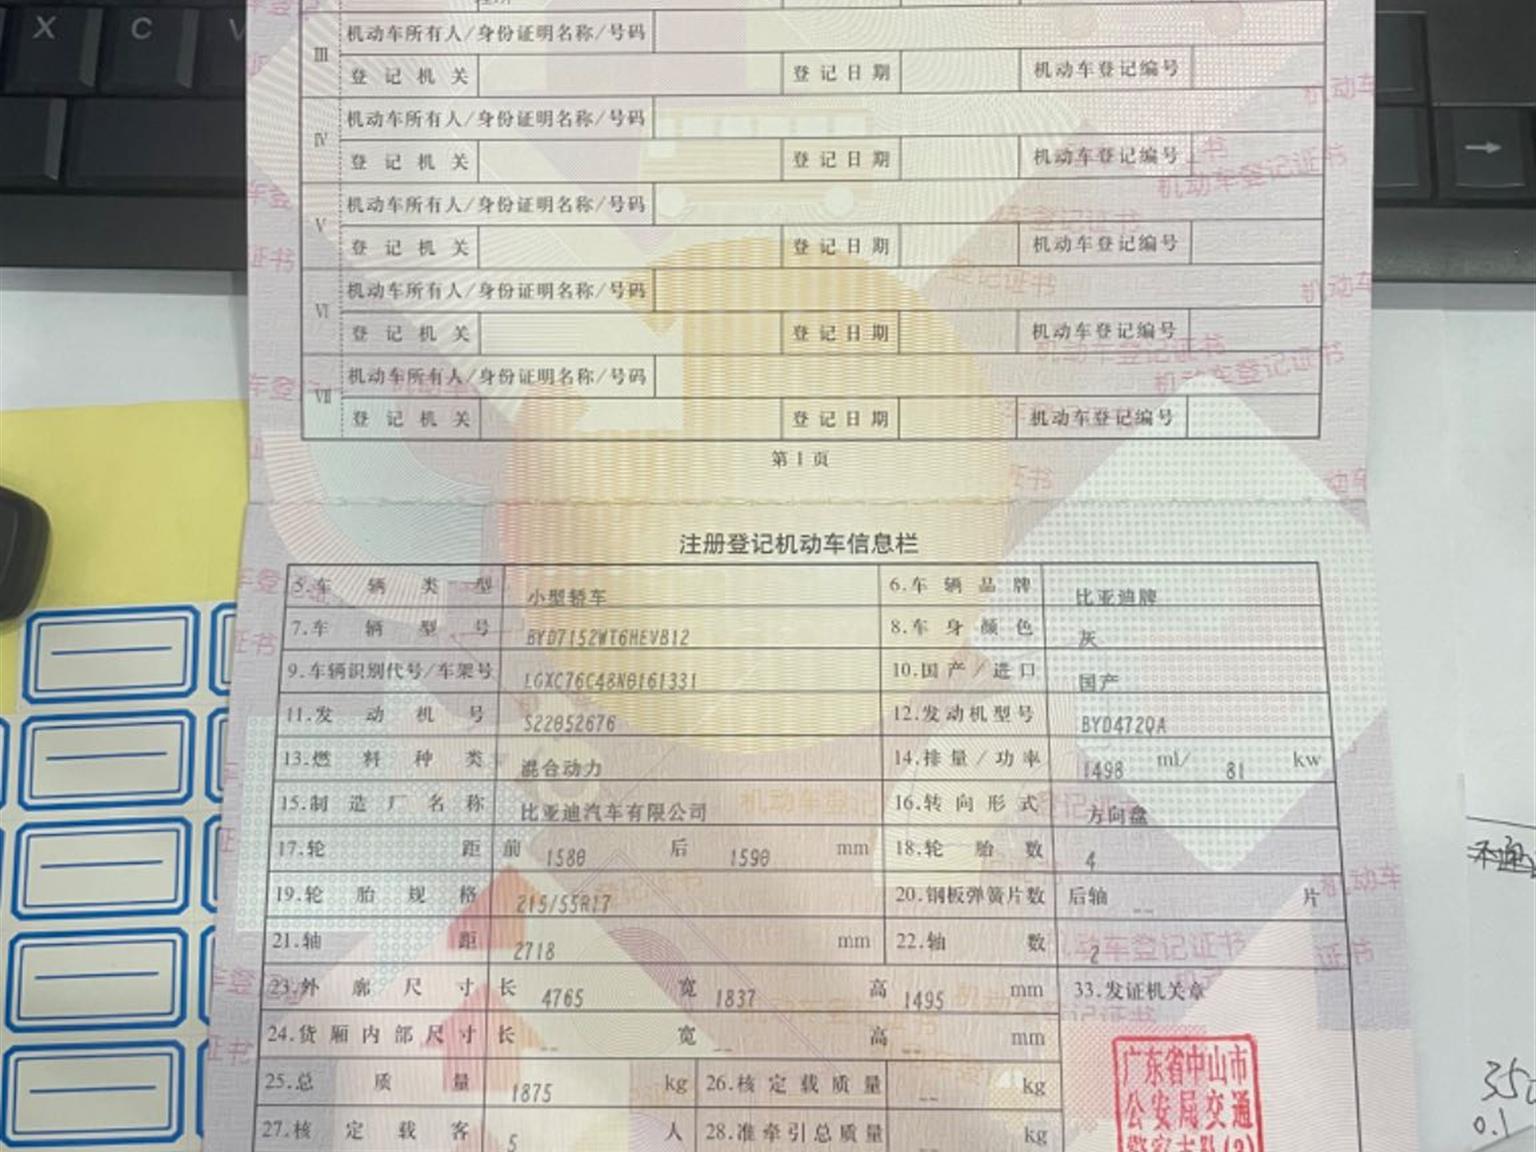 X C V
III 机动车所有人/身份证明名称/号码
登记机关 登记日期 机动车登记编号
IV 机动车所有人/身份证明名称/号码
登记机关 登记日期 机动车登记编号
V 机动车所有人/身份证明名称/号码
登记机关 登记日期 机动车登记编号
VI 机动车所有人/身份证明名称/号码
登记机关 登记日期 机动车登记编号
VII 机动车所有人/身份证明名称/号码
登记机关 登记日期 机动车登记编号
第 1 页
注册登记机动车信息栏
5.车辆类型 小型轿车 6.车辆品牌 比亚迪牌
7.车辆型号 BYD7152WT6HEVB12 8.车身颜色 灰
9.车辆识别代号/车架号 LGXC76C48N0161331 10.国产/进口 国产
11.发动机号 S22052676 12.发动机型号 BYD472QA
13.燃料种类 混合动力 14.排量/功率 1498 ml/ 81 kw
15.制造厂名称 比亚迪汽车有限公司 16.转向形式 方向盘
17.轮距 前 1580 后 1590 mm 18.轮胎数 4
19.轮胎规格 215/55R17 20.钢板弹簧片数 后轴 -- 片
21.轴距 2718 mm 22.轴数 2
23.外廓尺寸 长 4765 宽 1837 高 1495 mm 33.发证机关章
24.货厢内部尺寸 长 -- 宽 -- 高 -- mm
25.总质量 1875 kg 26.核定载质量 -- kg
27.核定载客 5 人 28.准牵引总质量 -- kg
广东省中山市
公安局交通
警察支队(3)
350
0.1